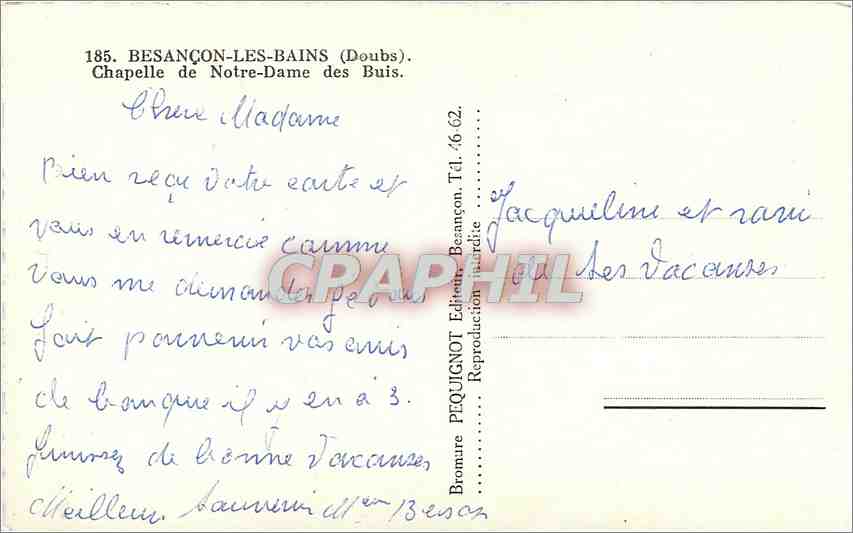 185. BESANÇON-LES-BAINS (Doubs).
Chapelle de Notre-Dame des Buis.
Chere Madame
Bien reçu votre carte et
vous en remercie comme
vous me demandez je vous
fait parvenir vos avis
de banque il y en à 3.
finissez de bonne vacanses
Meilleur Souvenir Mem
Bromure PEQUIGNOT Editeur, Besançon. Tél. 46-62.
Reproduction interdite
Jacqueline et ravi
de ses vacanses
CPAPHIL